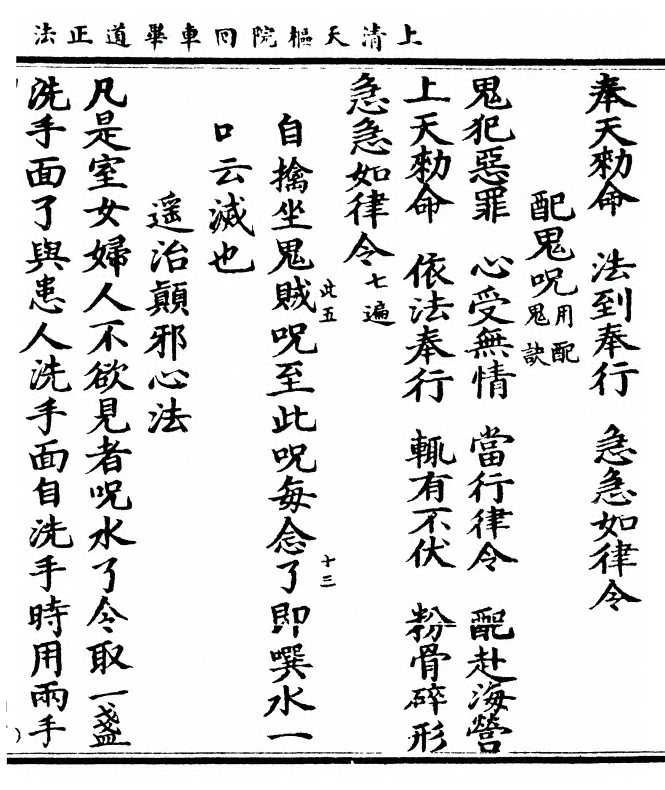 上清天樞院回車畢道正法
奉天勑命　法到奉行　急急如律令
配鬼呪用配鬼訣
鬼犯惡罪　心受無情　當行律令　配赴海營
上天勑命　依法奉行　輒有不伏　粉骨碎形
急急如律令七遍
自擒坐鬼賊此五呪至此呪每念了十三即噀水一
口云滅也
遥治顛邪心法
凡是室女婦人不欲見者呪水了令取一盞
洗手面了與患人洗手面自洗手時用兩手